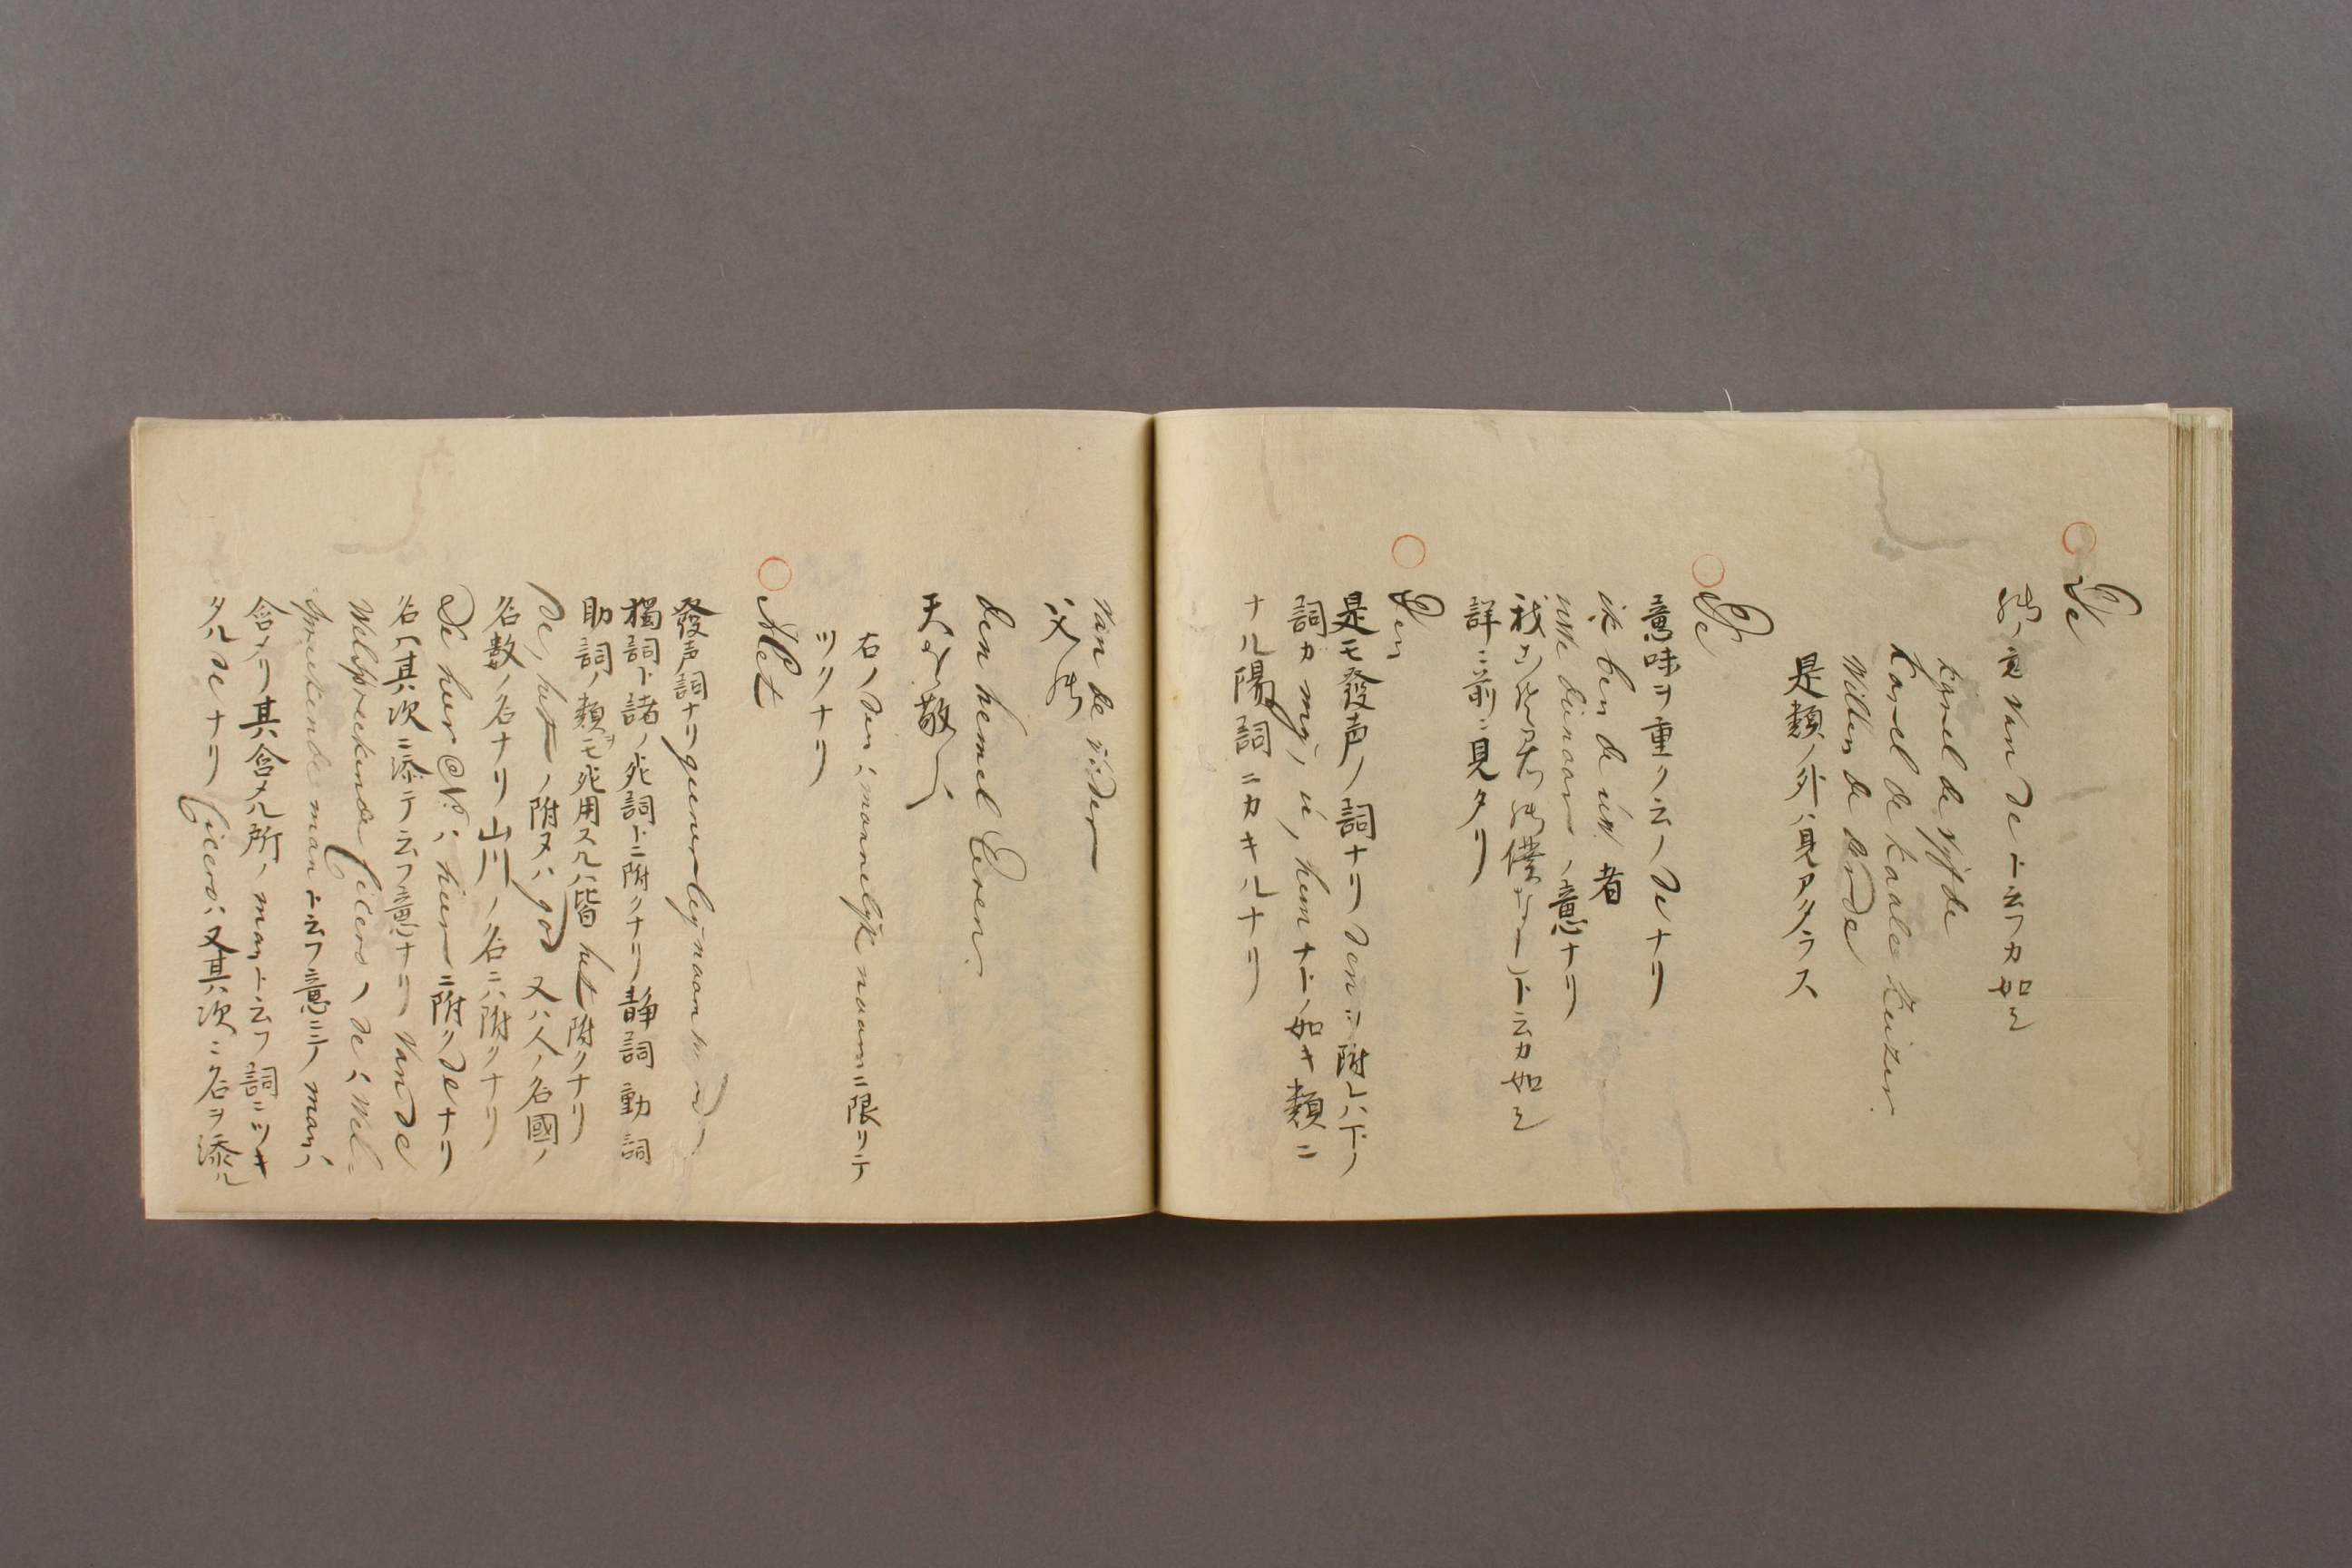 De
van de ト云フカ如シ
Karel de vijfde
Karel de kaale Keizer.
Willem de derde
是類ノ外ハ見アタラス
De
意味ヲ重ク云ノ de ナリ
ik ben de uw 者
uwe dienaar ノ意ナリ
僕 ト云カ如シ
詳ニ前ニ見タリ
Den
是モ發声ノ詞ナリ den ヲ附レハ下ノ
詞カ mij, u, hem ナトノ如キ類ニ
ナル陽詞ニカキルナリ
van de vader
父
den hemel Eeren.
天 敬
右ノ den ハ mannelijk naam ニ限リテ
ツクナリ
Het
發声詞ナリ
獨詞ト諸ノ死詞トニ附クナリ静詞動詞
助詞ノ類モ死用スルハ皆 het 附クナリ
de, het ノ附ヌハ god 又ハ人ノ名國ノ
名数ノ名ナリ山川ノ名ニハ附クナリ
De heer @ N: ハ heer ニ附ク de ナリ
名ハ其次ニ添テ云フ意ナリ Van de
Welspreekende Cicero ノ de ハ Wel=
spreekende man ト云フ意ニテ man ハ
含メリ其含メル所ノ man ト云フ詞ニツキ
タル de ナリ Cicero ハ又其次ニ名ヲ添ル